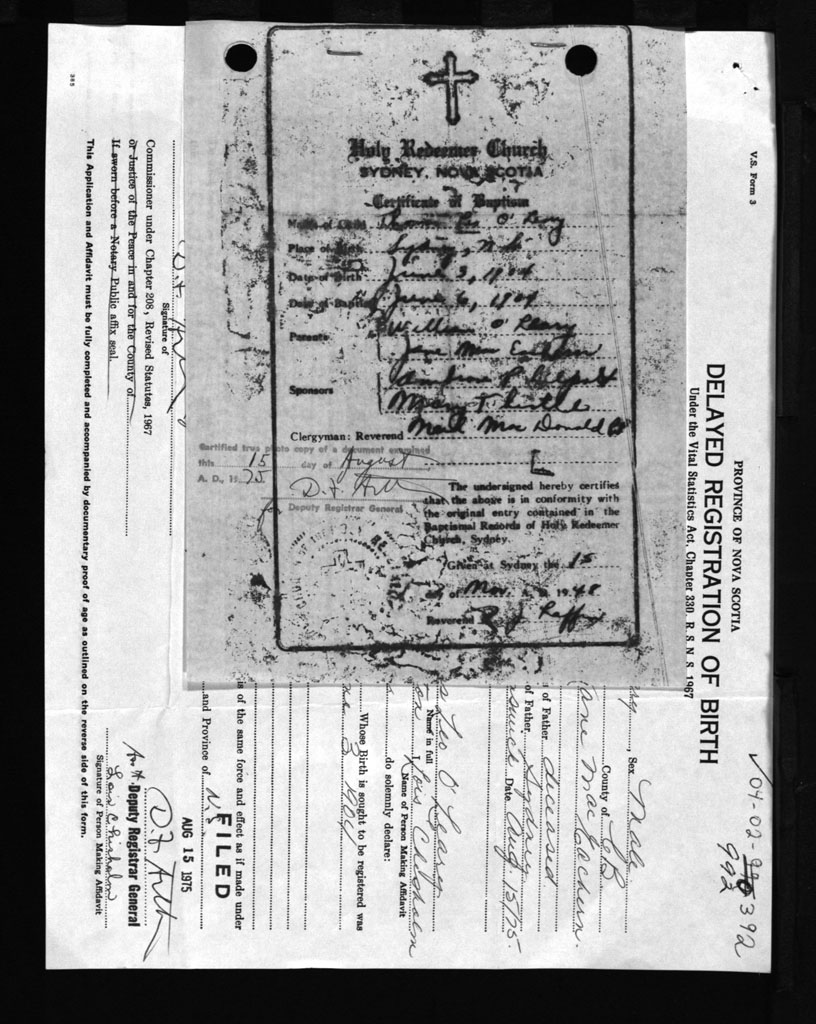 Holy Redeemer Church
SYDNEY, NOVA SCOTIA
Certificate of Baptism
Name of Child Thomas Leo O'Leary
Place of Birth Sydney, N.S.
Date of Birth June 3, 1904
Date of Baptism June 6, 1904
Parents William O'Leary
Jane Mac
Sponsors
Mary
Clergyman: Reverend Neil Mac Donald
Certified true photo copy of a document examined
this 15 day of August
A. D., 19 75
D.F. Hill
Deputy Registrar General
The undersigned hereby certifies
that the above is in conformity with
the original entry contained in the
Baptismal Records of Holy Redeemer
Church, Sydney.
Given at Sydney the 15
day of Nov. A. D. 1948
Reverend
V.S. Form 3
PROVINCE OF NOVA SCOTIA
DELAYED REGISTRATION OF BIRTH
Under the Vital Statistics Act, Chapter 330, R. S. N. S. 1967
992
, Sex Male
County of C.B.
Jane Mac Eachern
of Father deceased
of Father Sydney
Date Aug. 15/75.
s Leo O'Leary
Name in full
Lois Chisholm
Name of Person Making Affidavit
do solemnly declare:
Whose Birth is sought to be registered was
3 1904
is of the same force and effect as if made under
and Province of N.S.
FILED
AUG 15 1975
D.F. Hill
Deputy Registrar General
Lois C. Chisholm
Signature of Person Making Affidavit
D.F. Hill
Signature of
Commissioner under Chapter 208, Revised Statutes, 1967
or Justice of the Peace in and for the County of
If sworn before a Notary Public affix seal.
This Application and Affidavit must be fully completed and accompanied by documentary proof of age as outlined on the reverse side of this form.